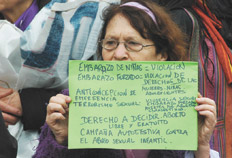 EMBARAZO DE NIÑAS = VIOLACIÓN
EMBARAZO FORZADO: VIOLACIÓN DE
DERECHOS DE LAS
ANTICONCEPCIÓN DE
EMERGENCIA
TERRORISMO SEXUAL
VIOLENCIA SEXUAL
DERECHO A DECIDIR, ABORTO
LIBRE Y GRATUITO
CAMPAÑA AUTOGESTIVA CONTRA
EL ABUSO SEXUAL INFANTIL